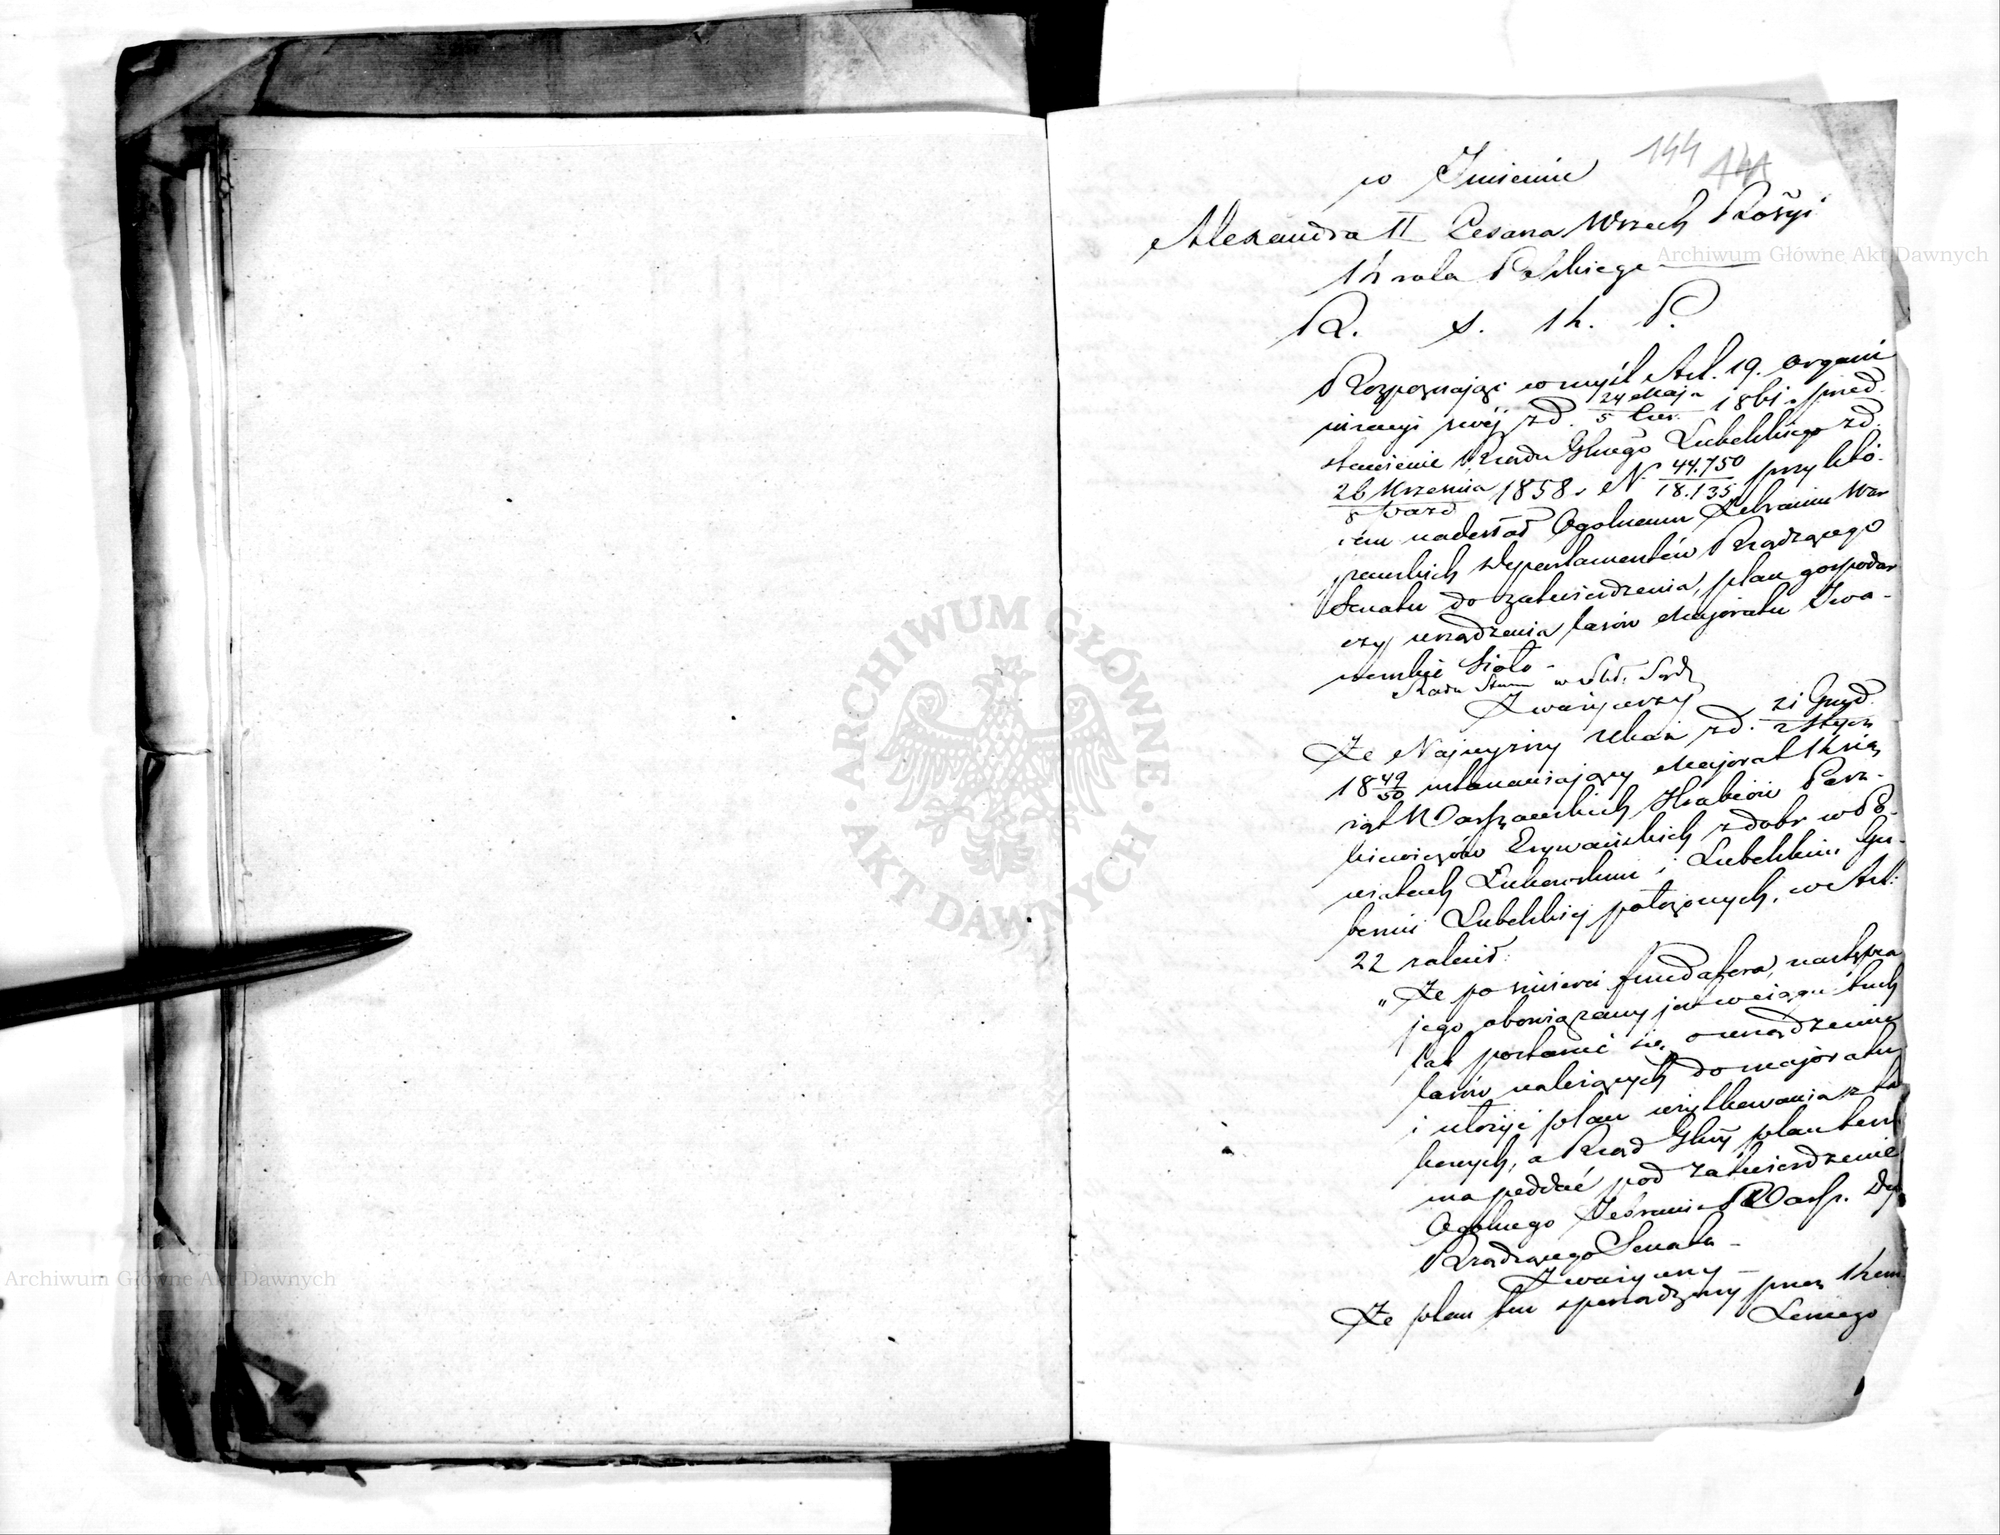 144 141
w Imieniu
Alexandra II Cesarza Wszech Rossyi
Króla Polskiego
R. S. K. P.
Rozpoznając w myśl Art. 19. organi
zacyi swéj z d. 24 Maja / 5 Czer. 1861 r. przed-
stawienie Rządu Gbnego Lubelskiego z d.
26 Września / 8 Paźd 1858 r. N 44.750 / 18.135 przy któ-
rém nadesłał Ogólnemu Zebraniu War
szawskich Departamentów Rządzącego
Senatu do zatwierdzenia, plan gospodar
czy urządzenia lasów Majoratu Iwa-
nowskie Sioło -
Rada Stanu w Skł. Sąd
Zważywszy
Że Najwyższy Ukaz z d. 21 Grud / 2 Stycz
18 49/50 ustanawiający Majorat Ksią
żąt Warszawskich, Hrabiów Pasz-
kiewiczów Erywańskich z dóbr w Po-
wiatach Łukowskim i Lubelskim Gu-
bernii Lubelskiej położonych, w Art.
22 zalecił:
"Że po śmierci fundatora, następca
jego obowiązany jest w ciągu trzech
lat postarać się o urządzenie
lasów należących do majoratu
i ułożyć plan użytkowania z ta
kowych, a Rząd Gbny plan ten
ma poddać pod zatwierdzenie
Ogólnego Zebrania Warsz. Dep
Rządzącego Senatu -
Zważywszy -
Że plan ten sporządzony przez Kom
Leśnego
Archiwum Główne Akt Dawnych
ARCHIWUM GŁÓWNE AKT DAWNYCH
Archiwum Główne Akt Dawnych